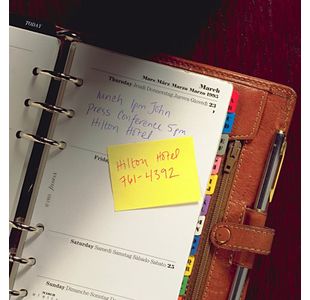 TODAY
March
Mars-März Marzo Marzo 1995
Thursday Jeudi Donnerstag Jueves Giovedì 23
Lunch 1pm John
Press Conference 5pm
Hilton Hotel
Friday
Hilton Hotel
761-4392
Saturday Samedi Samstag Sábado Sabato 25
Sunday Dimanche Sonntag Domingo